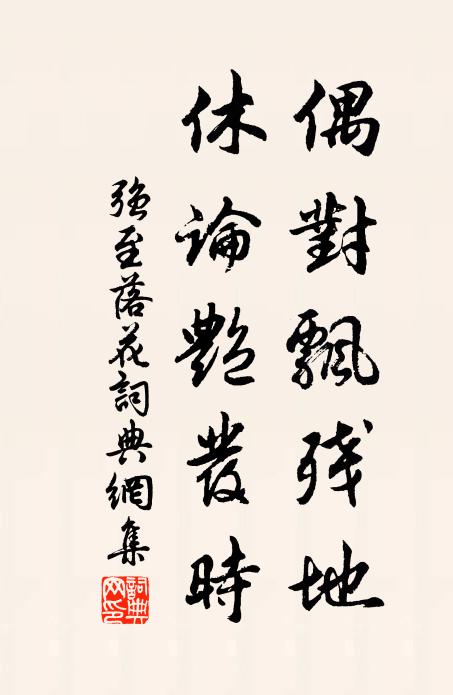 偶對飄殘地
休論艷發時
強至落花詞典網集
詞典網印